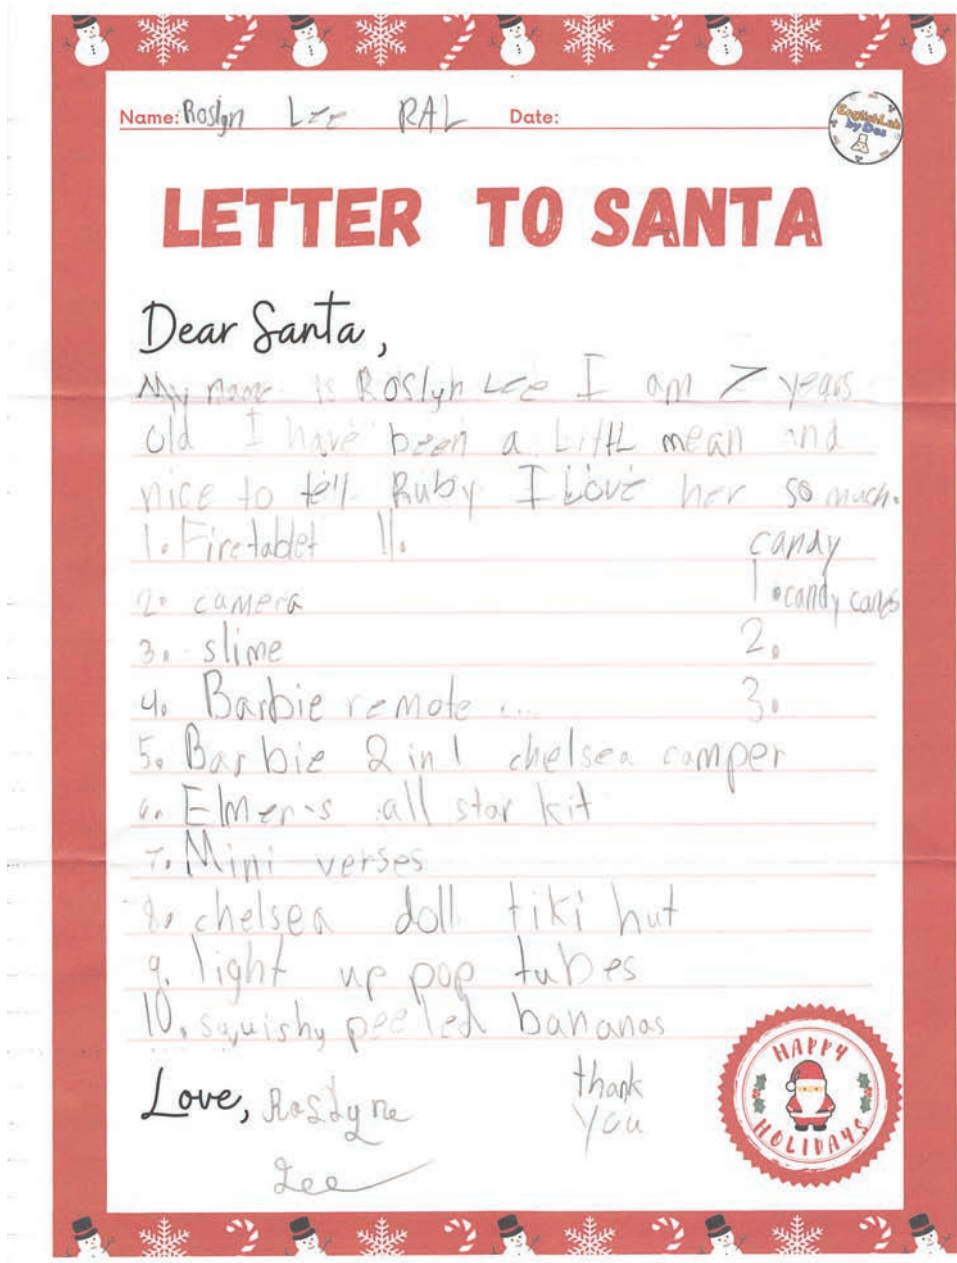 Name: Roslyn Lee RAL Date:
EnglishLab
by Des
LETTER TO SANTA
Dear Santa,
My name is Roslyn Lee I am 7 years
old I have been a Little mean and
nice to tell Ruby I Love her so much.
1. Firetablet 11. candy
2. camera 1. candy canes
3. slime 2.
4. Barbie remote ... 3.
5. Barbie 2 in 1 chelsea camper
6. Elmer-s all star kit
7. Mini verses
8. chelsea doll tiki hut
9. light up pop tubes
10. squishy peeled bananas
Love, Roslyne thank
Lee you
HAPPY
HOLIDAYS